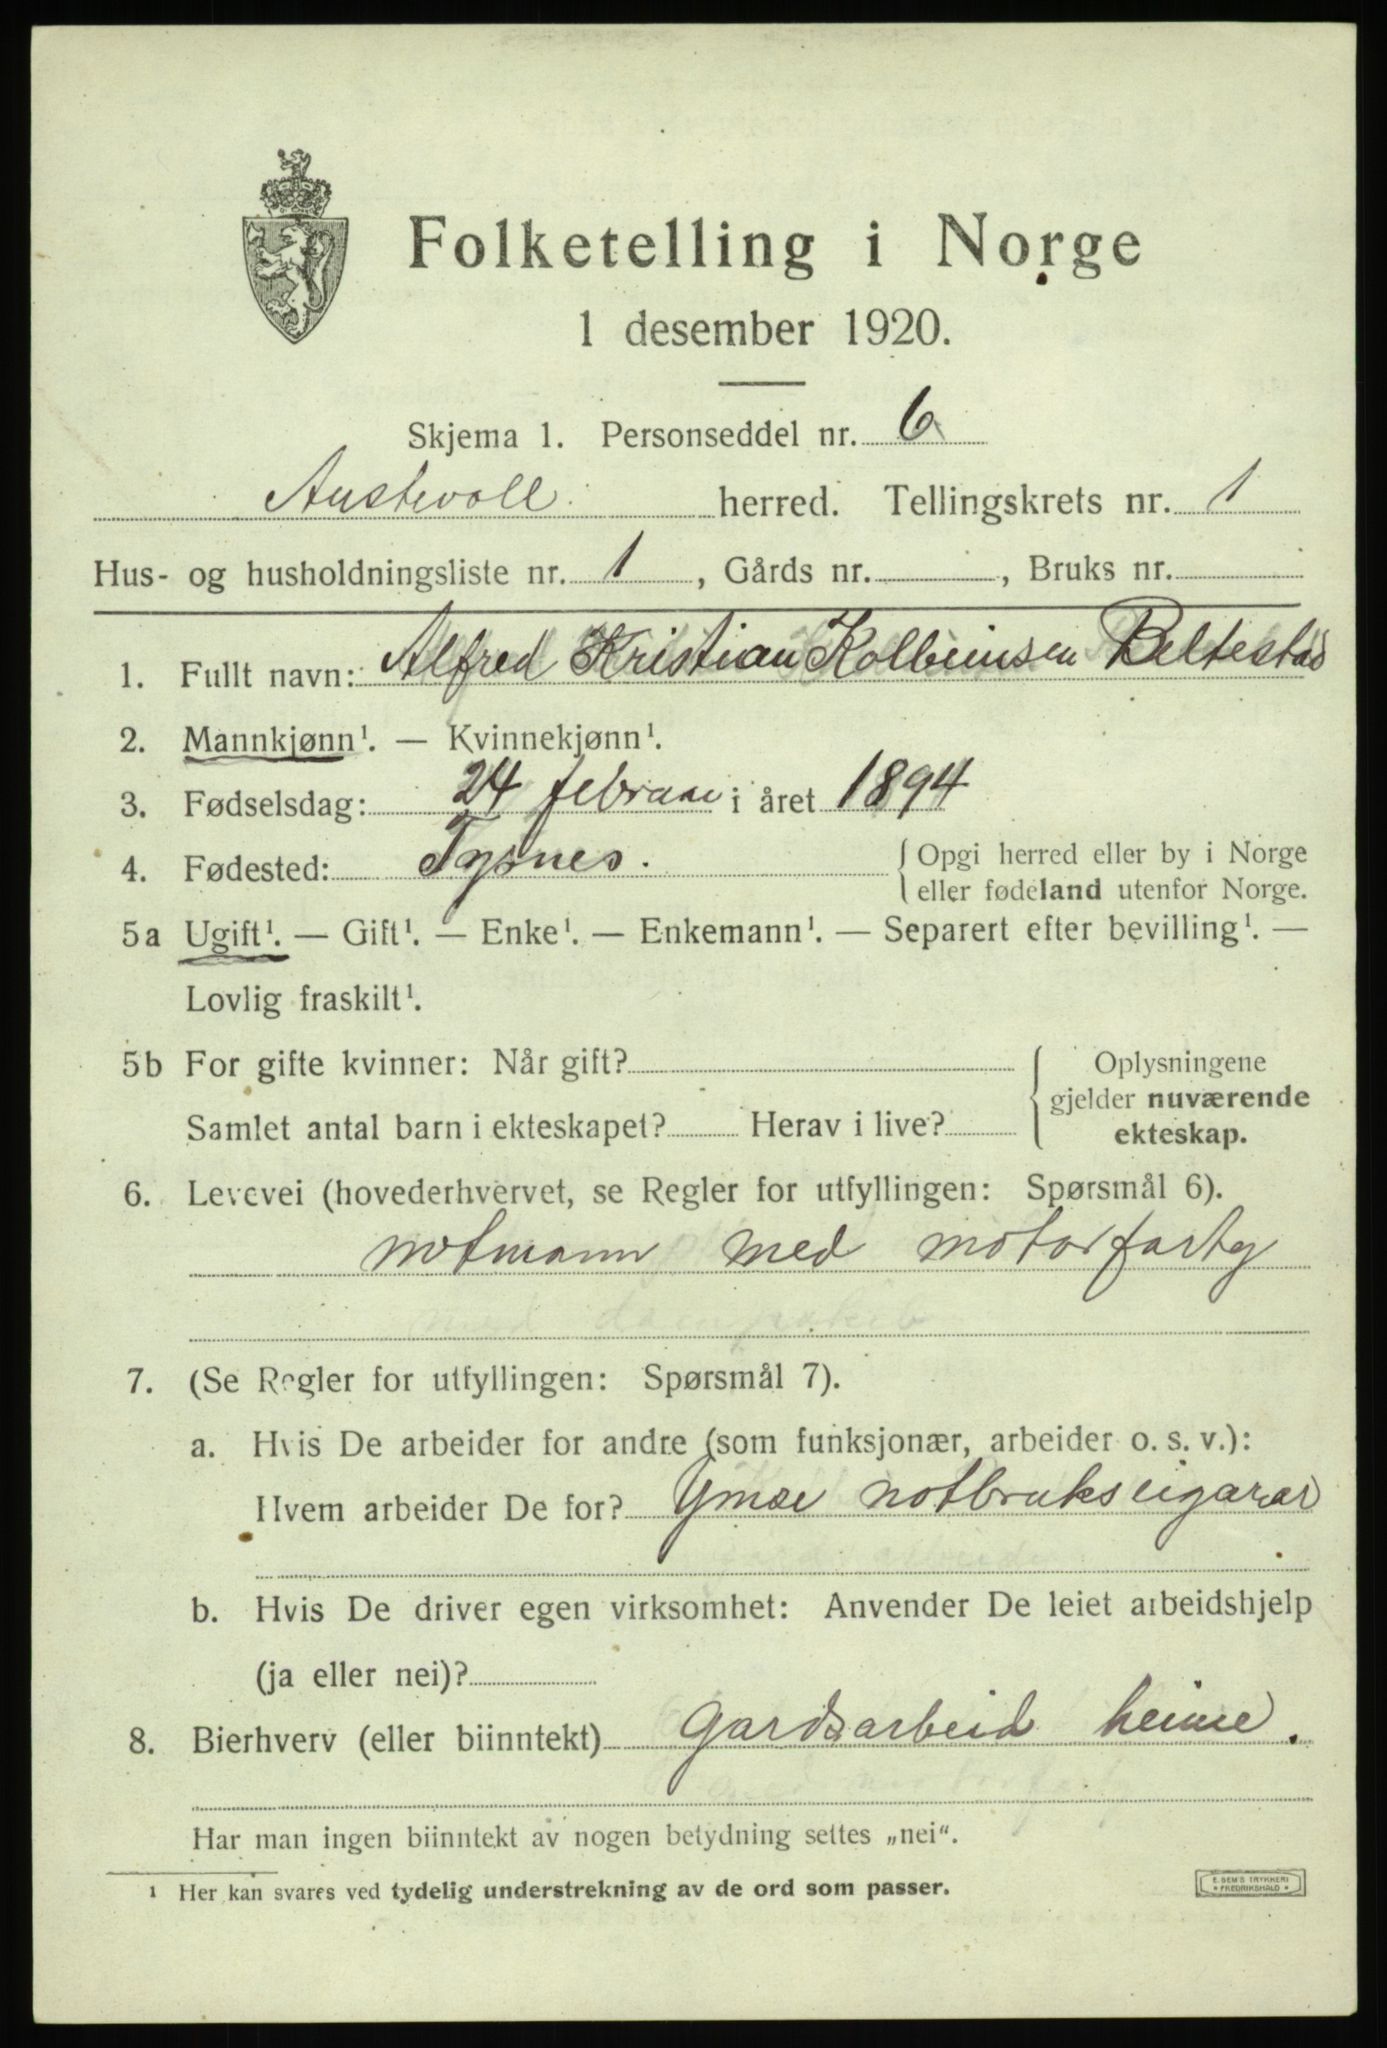 Folketelling i Norge
1 desember 1920.
Skjema 1. Personseddel nr. 6
Austevoll herred. Tellingskrets nr. 1
Hus- og husholdningsliste nr. 1, Gårds nr. , Bruks nr.
1. Fullt navn: Alfred Kristian Kolbeinsen Beltestad
2. Mannkjønn¹. — Kvinnekjønn¹.
3. Fødselsdag: 24 februar i året 1894
4. Fødested: Tysnes. { Opgi herred eller by i Norge
eller fødeland utenfor Norge.
5a Ugift¹. — Gift¹. — Enke¹. — Enkemann¹. — Separert efter bevilling¹. —
Lovlig fraskilt¹.
5b For gifte kvinner: Når gift?
Samlet antal barn i ekteskapet? Herav i live?
{ Oplysningene
gjelder nuværende
ekteskap.
6. Levevei (hovederhvervet, se Regler for utfyllingen: Spørsmål 6).
notmann med motorfarty
med dampskib
7. (Se Regler for utfyllingen: Spørsmål 7).
a. Hvis De arbeider for andre (som funksjonær, arbeider o. s. v.):
Hvem arbeider De for? Ymse notbrukseigarar
b. Hvis De driver egen virksomhet: Anvender De leiet arbeidshjelp
(ja eller nei)?
8. Bierhverv (eller biinntekt) Gardsarbeid heime.
Har man ingen biinntekt av nogen betydning settes „nei".
¹ Her kan svares ved tydelig understrekning av de ord som passer.
E. SEM'S TRYKKERI
* FREDRIKSHALD *